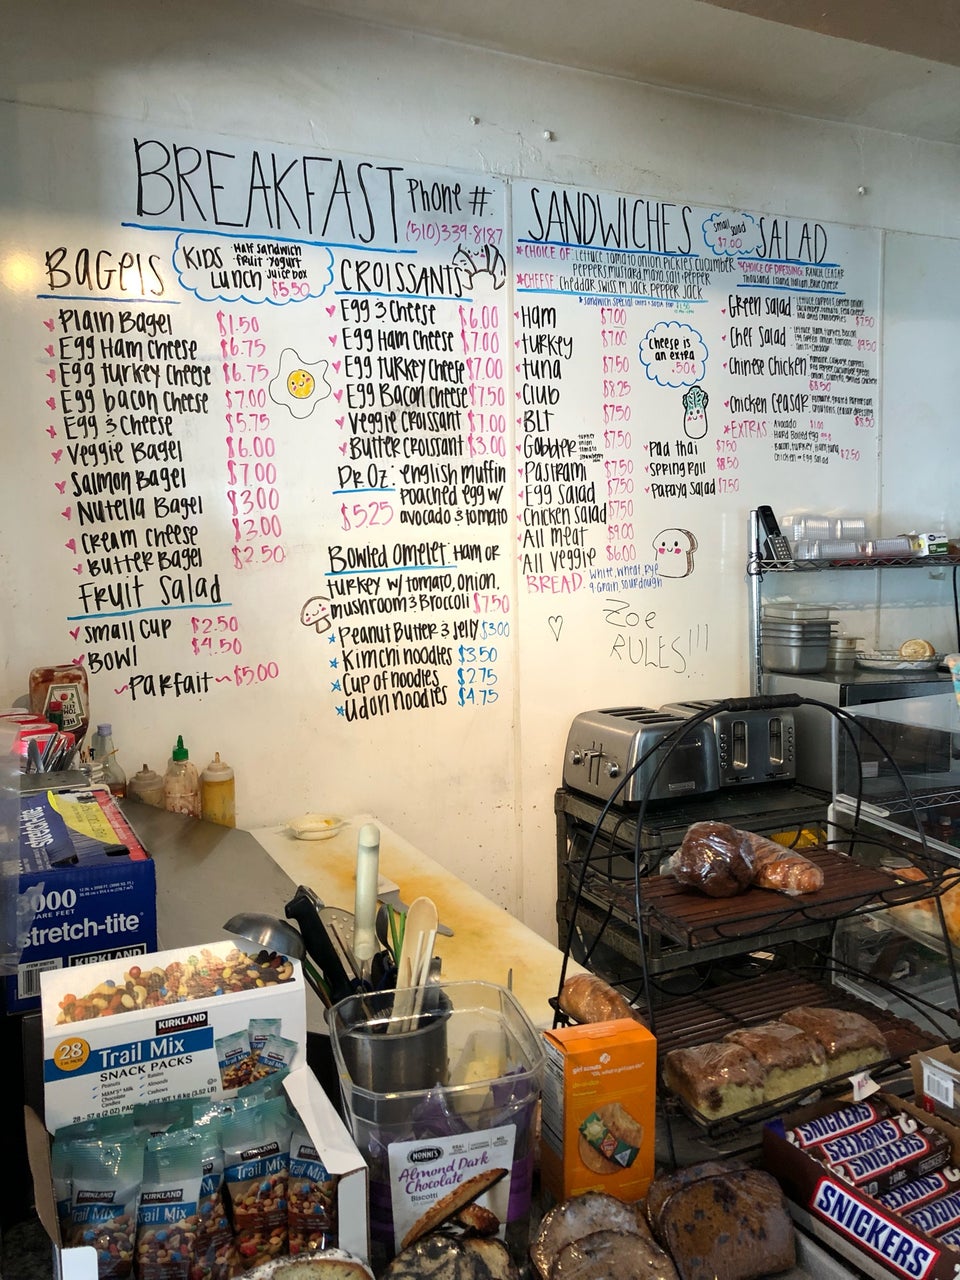 BREAKFAST
Phone #:
(510)339-8187
BAGELS
Plain Bagel $1.50
Egg Ham Cheese $6.75
Egg turkey Cheese $6.75
Egg bacon Cheese $7.00
Egg & Cheese $5.75
Veggie Bagel $6.00
Salmon Bagel $7.00
Nutella Bagel $3.00
Cream Cheese $3.00
Butter Bagel $2.50
Fruit Salad
Small Cup $2.50
Bowl $4.50
~Parfait~ $5.00
KIDS Lunch
Half sandwich
fruit yogurt
juice box
$5.50
CROISSANTS
Egg & Cheese $6.00
Egg Ham Cheese $7.00
Egg turkey Cheese $7.00
Egg Bacon Cheese $7.50
Veggie Croissant $7.00
Butter Croissant $3.00
Dr Oz: english muffin
poached egg w/
$5.25 avocado & tomato
Bowled Omelet: Ham or
turkey w/ tomato, onion,
mushroom & Broccoli $7.50
Peanut Butter & Jelly $3.00
Kimchi noodles $3.50
Cup of noodles $2.75
Udon noodles $4.75
SANDWICHES
CHOICE OF: Lettuce Tomato onion Pickles Cucumber
Peppers mustard mayo salt-pepper
CHEESE: Cheddar swiss m Jack, Pepper Jack
Ham $7.00
turkey $7.00
tuna $7.50
Club $8.25
BLT $7.50
Gobbler $7.50
Pastrami $7.50
Egg Salad $7.50
Chicken salad $7.50
All meat $9.00
All Veggie $6.00
BREAD: White, Wheat, Rye
9-Grain, Sourdough
Cheese is
an extra
.50¢
Pad thai $7.50
Spring Roll $8.50
Papaya Salad $7.50
Zoe
RULES!!!
small salad
$7.00
SALAD
CHOICE OF DRESSING: RANCH, CEASAR
Thousand Island, Italian, Blue Cheese
Green Salad $7.50
Chef Salad $9.50
Chinese Chicken
$8.50
Chicken Ceasar $8.50
EXTRAS
Avocado $1.00
Hard Boiled egg
Bacon, Turkey, Ham, tuna $2.50
Chicken or Egg Salad
stretch-tite
3000
SQUARE FEET
stretch-tite
KIRKLAND
KIRKLAND
28
Trail Mix
SNACK PACKS
Peanuts
M&M's Milk Chocolate Candies
Raisins
Almonds
Cashews
KIRKLAND
Trail Mix
KIRKLAND
Trail Mix
KIRKLAND
Trail Mix
NONNI'S
Almond Dark
Chocolate
Biscotti
girl scouts
SNICKERS
SNICKERS
SNICKERS
SNICKERS
SNICKERS